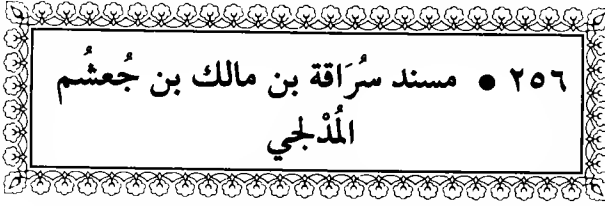 ٢٥٦ • مسند سُرَاقة بن مالك بن جُعشُم
المُدْلجي